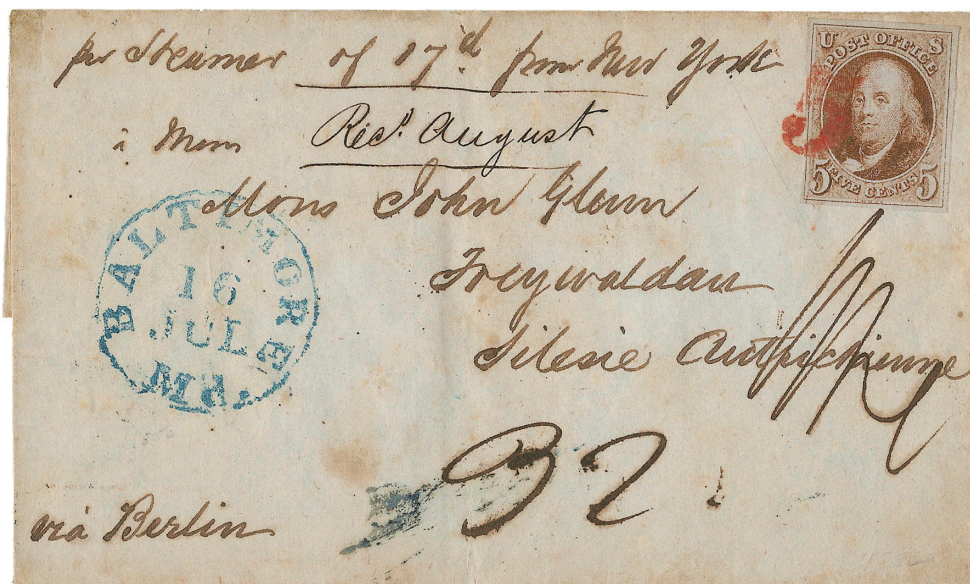 per Steamer of 17d. from New York
U S
POST OFFICE
FIVE CENTS
5 5
à Mons
Recd. August
Mons John Glenn
Freywaldau
Silesie Autrichienne
BALTIMORE
16
JUL
Md.
32
via Berlin